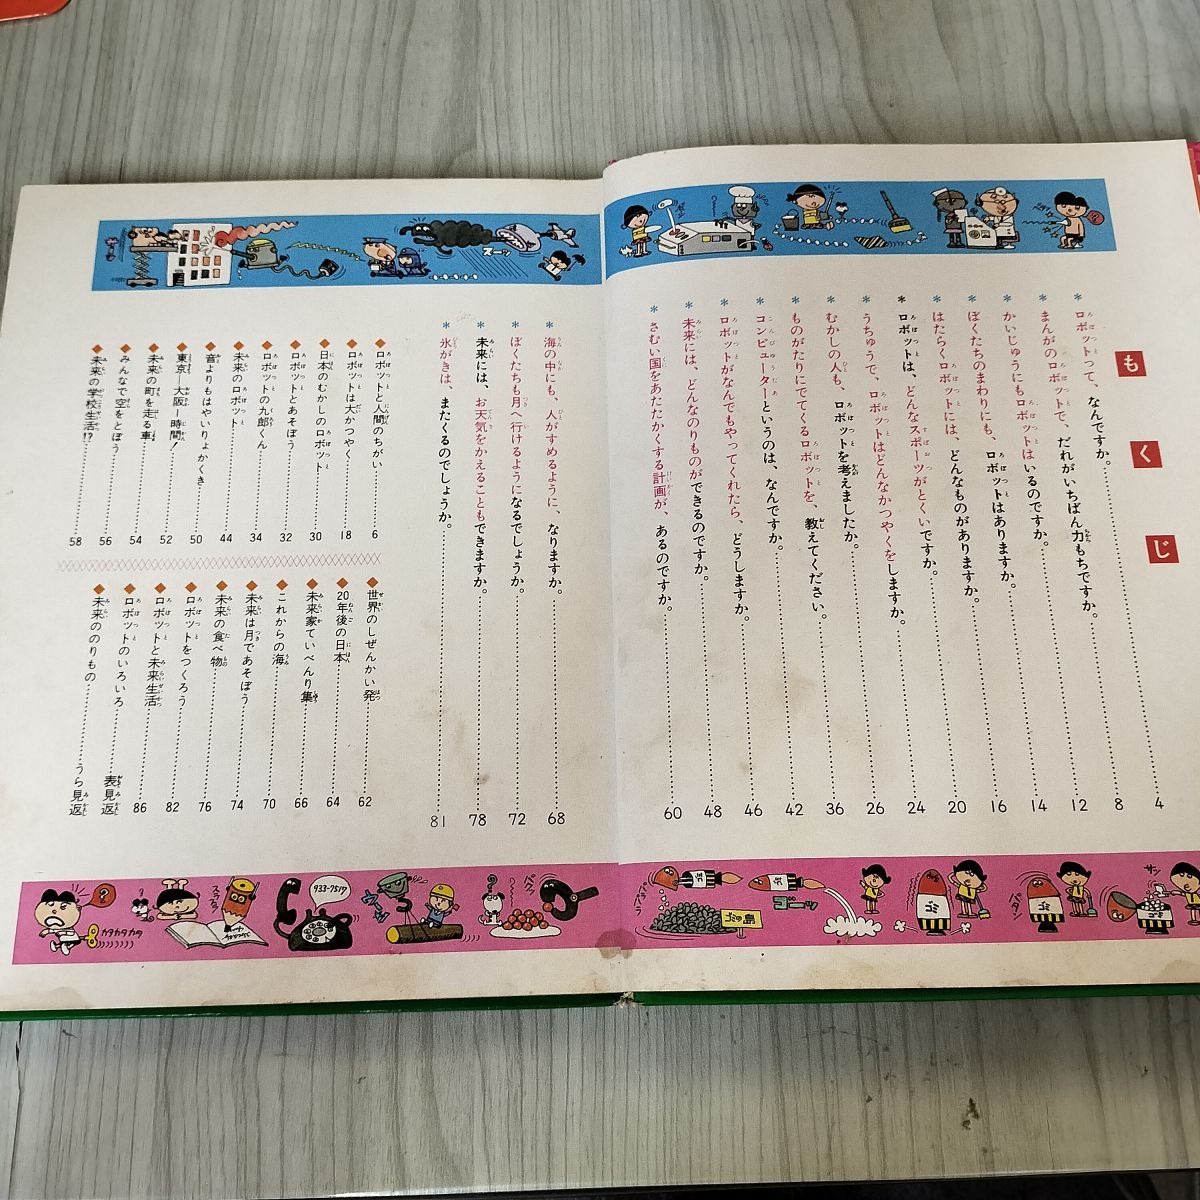 もくじ
＊ロボットって、なんですか。……4
＊まんがのロボットで、だれがいちばん力もちですか。……8
＊かいじゅうにもロボットはいるのですか。……12
＊ぼくたちのまわりにも、ロボットはありますか。……14
＊はたらくロボットには、どんなものがありますか。……16
＊ロボットは、どんなスポーツがとくいですか。……20
＊うちゅうで、ロボットはどんなかつやくをしますか。……24
＊むかしの人も、ロボットを考えましたか。……26
＊ものがたりにでてくるロボットを、教えてください。……36
＊コンピューターというのは、なんですか。……42
＊ロボットがなんでもやってくれたら、どうしますか。……46
＊未来には、どんなのりものができるのですか。……48
＊さむい国をあたたかくする計画が、あるのですか。……60
＊海の中にも、人がすめるように、なりますか。……68
＊ぼくたちも月へ行けるようになるでしょうか。……72
＊未来には、お天気をかえることもできますか。……78
＊氷がきは、またくるのでしょうか。……81
◆ロボットと人間のちがい……6
◆ロボットは大かつやく……18
◆日本のむかしのロボット……30
◆ロボットとあそぼう……32
◆ロボットの九郎くん……34
◆未来のロボット……44
◆音よりもはやいりょかくき……50
◆東京—大阪一時間!……52
◆未来の町を走る車……54
◆みんなで空をとぼう……56
◆未来の学校生活!?……58
◆世界のしぜんかい発……62
◆20年後の日本……64
◆未来家ていべんり集……66
◆これからの海……70
◆未来は月であそぼう……74
◆未来の食べ物……76
◆ロボットをつくろう……82
◆ロボットと未来生活……86
◆ロボットのいろいろ……表見返
◆未来ののりもの……うら見返
スーツ
カタカタカタ
933-7517
ゴミの島
ゴーッ
パタン
ゴミ